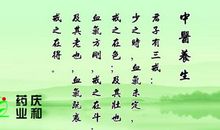 中醫養生
君子有三戒：
少之時，血氣未定，
戒之在色；及其壯也，
血氣方剛，戒之在斗；
及其老也，血氣既衰，
戒之在得。
庆和
药业